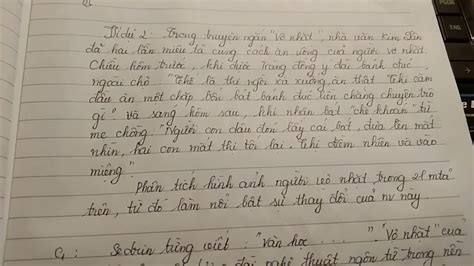 Ví dụ 2: Trong truyện ngắn "Vợ nhặt", nhà văn Kim Lân
đã hai lần miêu tả cung cách ăn uống của người vợ nhặt.
Chiều hôm trước, khi được Tràng đồng ý đãi bánh đúc
ngoài chợ: "Thế là thị ngồi xà xuống, ăn thật. Thị cắm
đầu ăn một chặp bốn bát bánh đúc liền chẳng chuyện trò
gì" và sáng hôm sau, khi nhận bát "chè khoán" từ
mẹ chồng: "Người con dâu đón lấy cái bát, đưa lên mắt
nhìn, hai con mắt thị tối lại. Thị điềm nhiên và vào
miệng".
Phân tích hình ảnh người vợ nhặt trong 2 lần mtả
trên, từ đó làm nổi bật sự thay đổi của nv này.
Sêđrin từng viết: "Văn học ..... " "Vợ nhặt" của
nghệ thuật ngôn từ trong nền